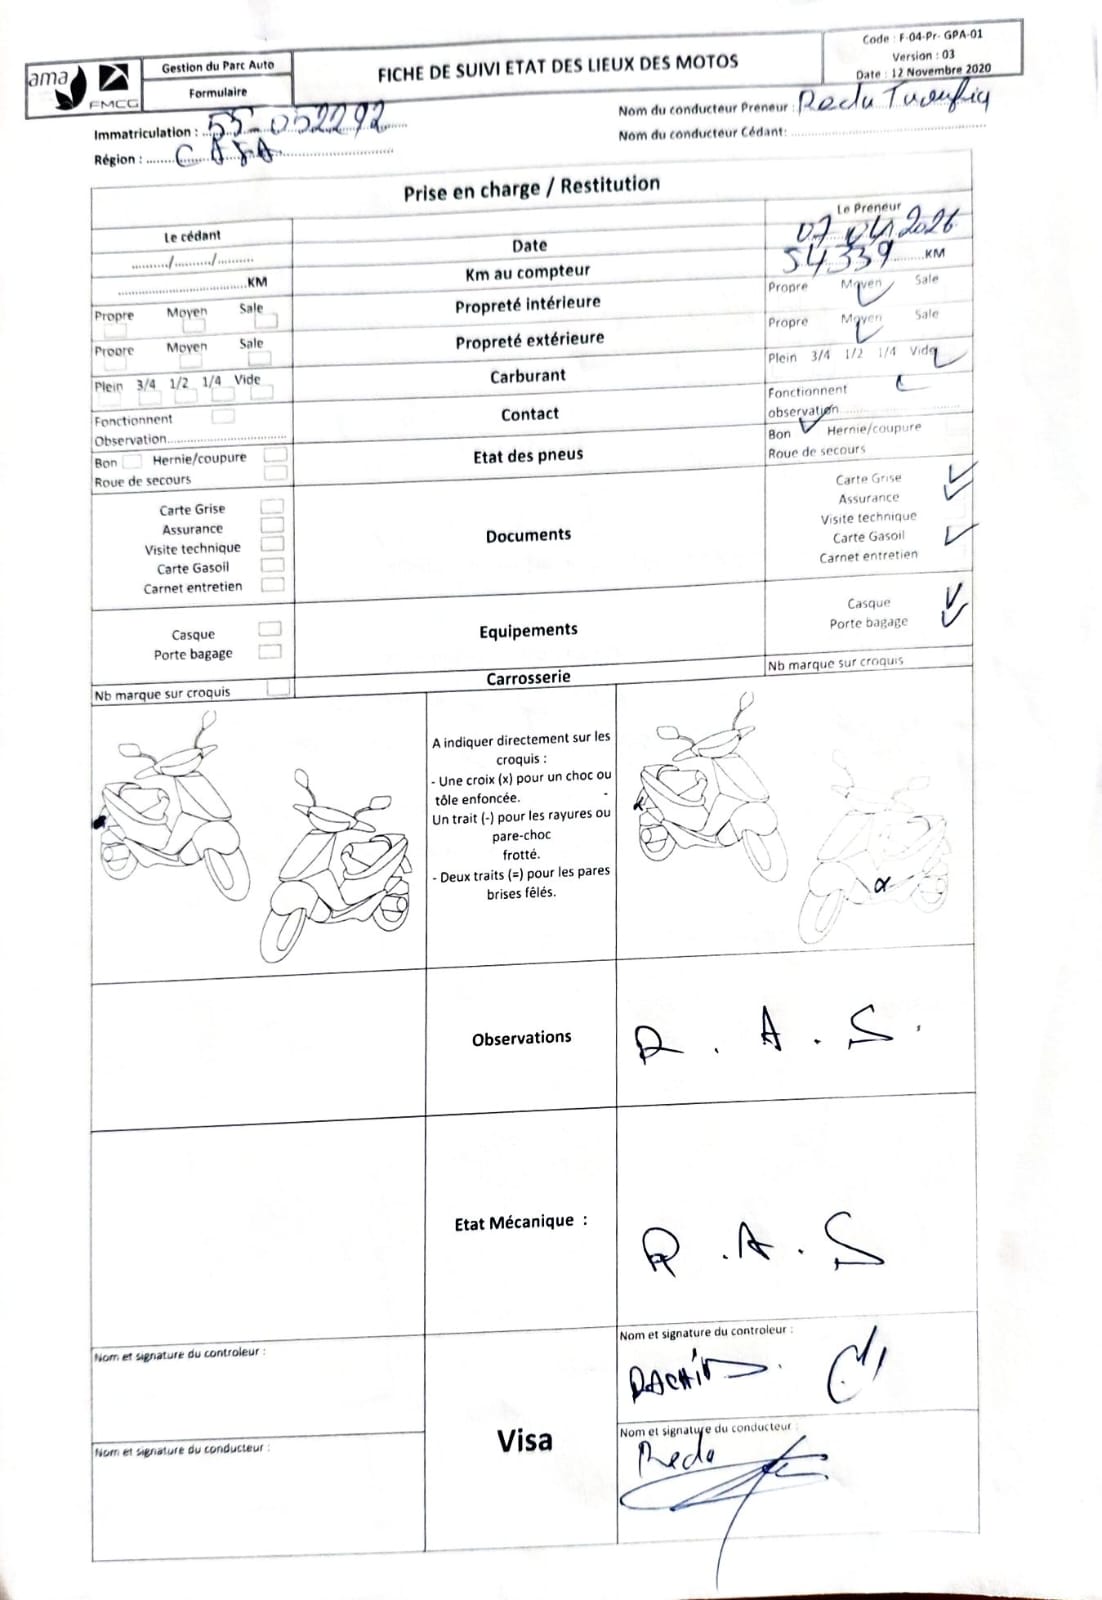 ama
FMCG
Gestion du Parc Auto
Formulaire
FICHE DE SUIVI ETAT DES LIEUX DES MOTOS
Code : F-04-Pr- GPA-01
Version : 03
Date : 12 Novembre 2020
Immatriculation : 55-052292
Région : CASA
Nom du conducteur Preneur : Reda
Nom du conducteur Cédant:
Prise en charge / Restitution
Le cédant
Le Preneur
........./........./.........
Date
07 04 2026
KM
Km au compteur
54339 KM
Propre Moyen Sale
Propreté intérieure
Propre Moyen Sale
Propre Moyen Sale
Propreté extérieure
Propre Moyen Sale
Plein 3/4 1/2 1/4 Vide
Carburant
Plein 3/4 1/2 1/4 Vide
Fonctionnent
Observation
Contact
Fonctionnent
observation
Bon Hernie/coupure
Roue de secours
Etat des pneus
Bon Hernie/coupure
Roue de secours
Carte Grise
Assurance
Visite technique
Carte Gasoil
Carnet entretien
Documents
Carte Grise
Assurance
Visite technique
Carte Gasoil
Carnet entretien
Casque
Porte bagage
Equipements
Casque
Porte bagage
Nb marque sur croquis
Carrosserie
Nb marque sur croquis
A indiquer directement sur les
croquis :
- Une croix (x) pour un choc ou
tôle enfoncée. -
Un trait (-) pour les rayures ou
pare-choc
frotté.
- Deux traits (=) pour les pares
brises fêlés.
Observations
R . A . S .
Etat Mécanique :
R . A . S
Nom et signature du controleur :
Nom et signature du conducteur :
Visa
Nom et signature du controleur :
RACHID
Nom et signature du conducteur :
Reda